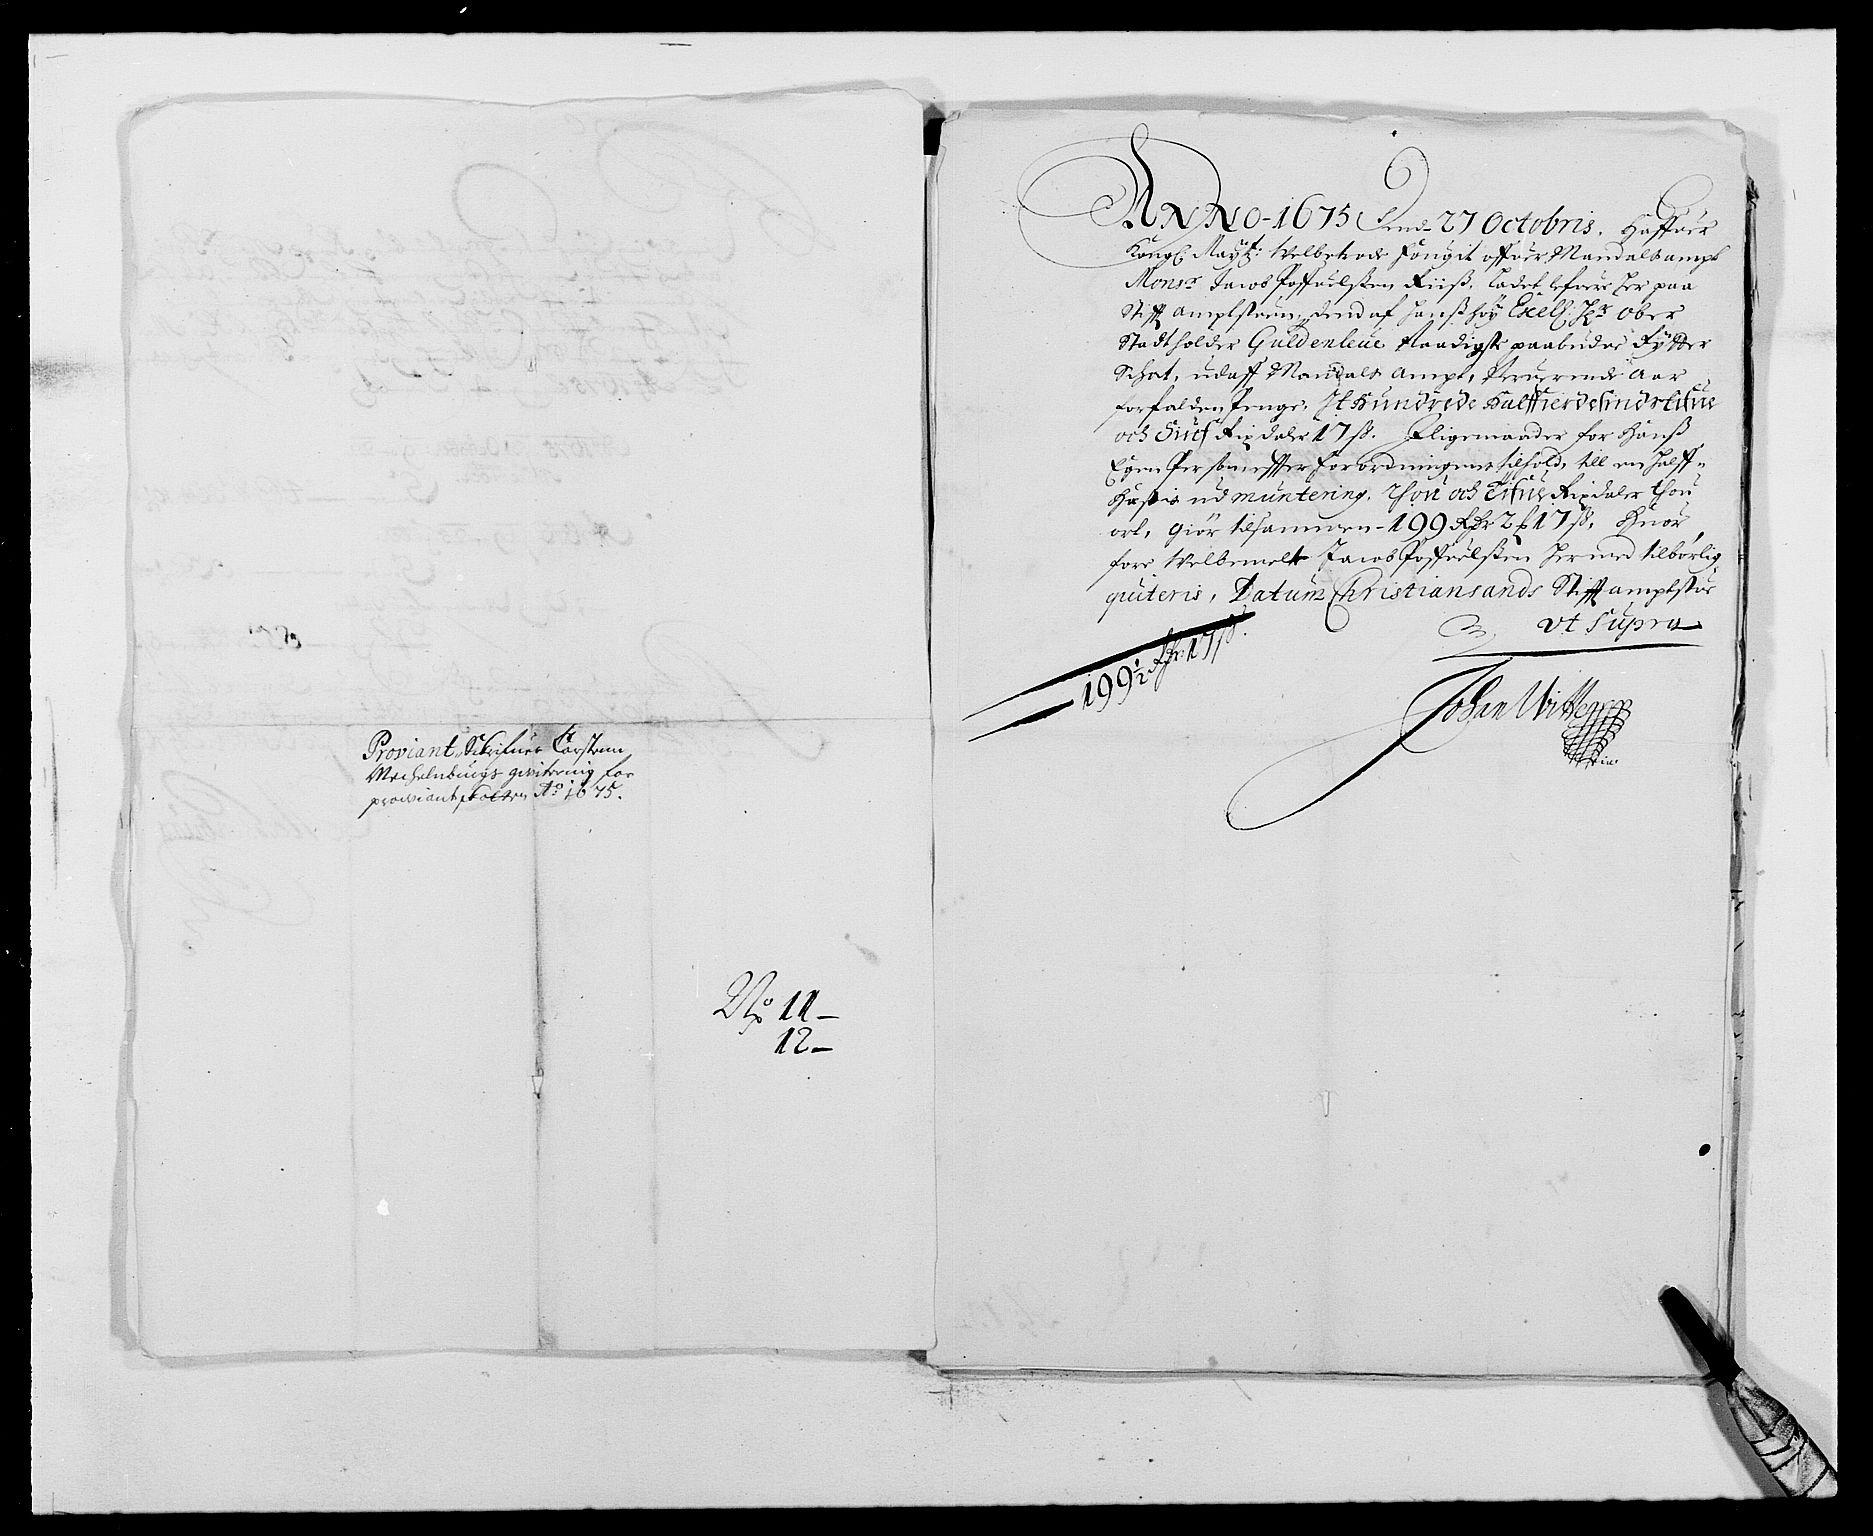 Proviant Skrifuer Carsten
Mechelnburgs qviterinig for
proviant skatten Ao 1675.
No 11 -
12 -
ANNO - 1675 Dend 27 Octobris. Haffuer
Kongl. Maytz: Velbetrode Fougit offuer Mandals ampt
Monsr Jacob Poffuelsten Riiss, Ladet lefuere her paa
Stifft amptstuen, dend af Hanss höy Excell: Hr Ober
Stadtholder Guldenleue Naadigste paabudne Rÿtter
Schat, udaff Mandals Ampt, Nerverende Aar
forfalden Penge, It Hundrede Halffierdesindstifue
och Siuf Rixdaler 17 ß. Iligemaader for Hanss
Egen Person effter forordningens tilhold, till en halff
Hæstis ud muntering, thou och tifue Rixdaler thou
ort, giör tilsammen - 199 Rdr 2 ort 17 ß, Huor
fore Velbemelte Jacob Poffuelsten hermed tilbörlig
quiteris, Datum Christiansands Stifft amptstue
Vt Supra
199½ Rdr 17 ß.
Johan Witte